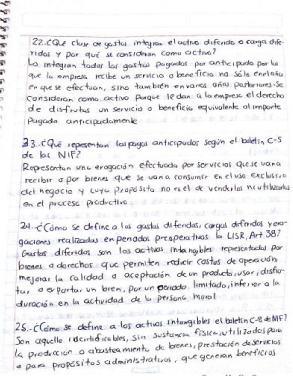 22.-¿Qué clase de gastos integran el activo diferido o cargo dife-
ridos y por qué se consideran como activo?
Lo integran todos los gastos pagados por anticipado por lo
que la empresa recibe un servicio o beneficio no sólo en el año
en que se efectúan, sino también en varios años posteriores. Se
consideran como activo porque le dan a la empresa el derecho
de disfrutar un servicio o beneficio equivalente al importe
pagado anticipadamente
23.-¿Qué representan los pagos anticipados según el boletín C-5
de las NIF?
Representan una erogación efectuada por servicios que se van a
recibir o por bienes que se van a consumir en el uso exclusivo
del negocio y cuyo propósito no es el de venderlos ni utilizarlos
en el proceso productivo.
24.-¿Cómo se define a los gastos diferidos, cargos diferidos y ero-
gaciones realizadas en periodos preoperativos la LISR, Art 38?
Gastos diferidos son los activos intangibles representados por
bienes o derechos que permiten reducir costos de operación
mejorar la calidad o aceptación de un producto, usar, disfru-
tar o explotar un bien, por un periodo limitado, inferior a la
duración en la actividad de la persona moral
25.-¿Cómo se define a los activos intangibles el boletín C-8 de NIF?
Son aquellos identificables, sin sustancia física, utilizados para
la producción o abastecimiento de bienes, prestación de servicios
o para propósitos administrativos, que generan beneficios